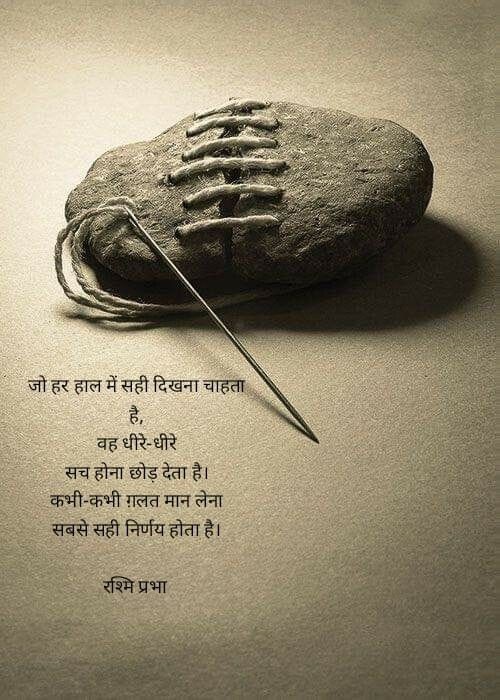 जो हर हाल में सही दिखना चाहता
है,
वह धीरे-धीरे
सच होना छोड़ देता है।
कभी-कभी ग़लत मान लेना
सबसे सही निर्णय होता है।
रश्मि प्रभा